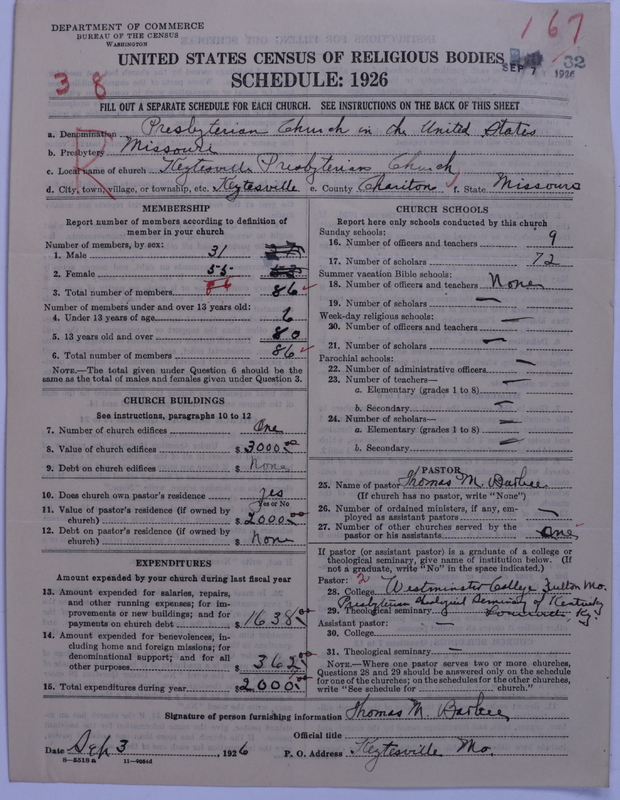 DEPARTMENT OF COMMERCE
BUREAU OF THE CENSUS
WASHINGTON
167
32
SEP 7 1926
38
UNITED STATES CENSUS OF RELIGIOUS BODIES
SCHEDULE: 1926
FILL OUT A SEPARATE SCHEDULE FOR EACH CHURCH. SEE INSTRUCTIONS ON THE BACK OF THIS SHEET
R
a. Denomination Presbyterian Church in the United States
b. Presbytery Missouri
c. Local name of church Keytesville Presbyterian Church
d. City, town, village, or township, etc. Keytesville e. County Chariton f. State Missouri
MEMBERSHIP
Report number of members according to definition of
member in your church
Number of members, by sex:
1. Male 31
2. Female 55
86
3. Total number of members 86
Number of members under and over 13 years old:
4. Under 13 years of age 6
5. 13 years old and over 80
6. Total number of members 86
NOTE.—The total given under Question 6 should be the
same as the total of males and females given under Question 3.
CHURCH BUILDINGS
See instructions, paragraphs 10 to 12
7. Number of church edifices One
8. Value of church edifices $ 3000.00
9. Debt on church edifices $ None
10. Does church own pastor's residence yes
Yes or No
11. Value of pastor's residence (if owned by
church) $ 2000.00
12. Debt on pastor's residence (if owned by
church) $ None
EXPENDITURES
Amount expended by your church during last fiscal year
13. Amount expended for salaries, repairs,
and other running expenses; for im-
provements or new buildings; and for
payments on church debt $ 1638.00
14. Amount expended for benevolences, in-
cluding home and foreign missions; for
denominational support; and for all
other purposes $ 362.00
15. Total expenditures during year $ 2000.00
CHURCH SCHOOLS
Report here only schools conducted by this church
Sunday schools:
16. Number of officers and teachers 9
17. Number of scholars 72
Summer vacation Bible schools:
18. Number of officers and teachers None
19. Number of scholars —
Week-day religious schools:
20. Number of officers and teachers —
21. Number of scholars —
Parochial schools:
22. Number of administrative officers —
23. Number of teachers—
a. Elementary (grades 1 to 8) —
b. Secondary —
24. Number of scholars—
a. Elementary (grades 1 to 8) —
b. Secondary —
PASTOR
25. Name of pastor Thomas M. Barbee
(If church has no pastor, write "None")
26. Number of ordained ministers, if any, em-
ployed as assistant pastors —
27. Number of other churches served by the
pastor or his assistants One
If pastor (or assistant pastor) is a graduate of a college or
theological seminary, give name of institution below. (If
not a graduate, write "No" in the space indicated.)
Pastor: 2
28. College Westminster College, Fulton Mo.
Presbyterian Theological Seminary of Kentucky
29. Theological seminary Louisville, Ky
Assistant pastor: —
30. College
31. Theological seminary —
NOTE.—Where one pastor serves two or more churches,
Questions 28 and 29 should be answered only on the schedule
for one of the churches; on the schedules for the other churches,
write "See schedule for church."
Signature of person furnishing information Thomas M. Barbee
Official title
Date Sep 3, 1926 P. O. Address Keytesville Mo.
8—5518 a 11—9054d